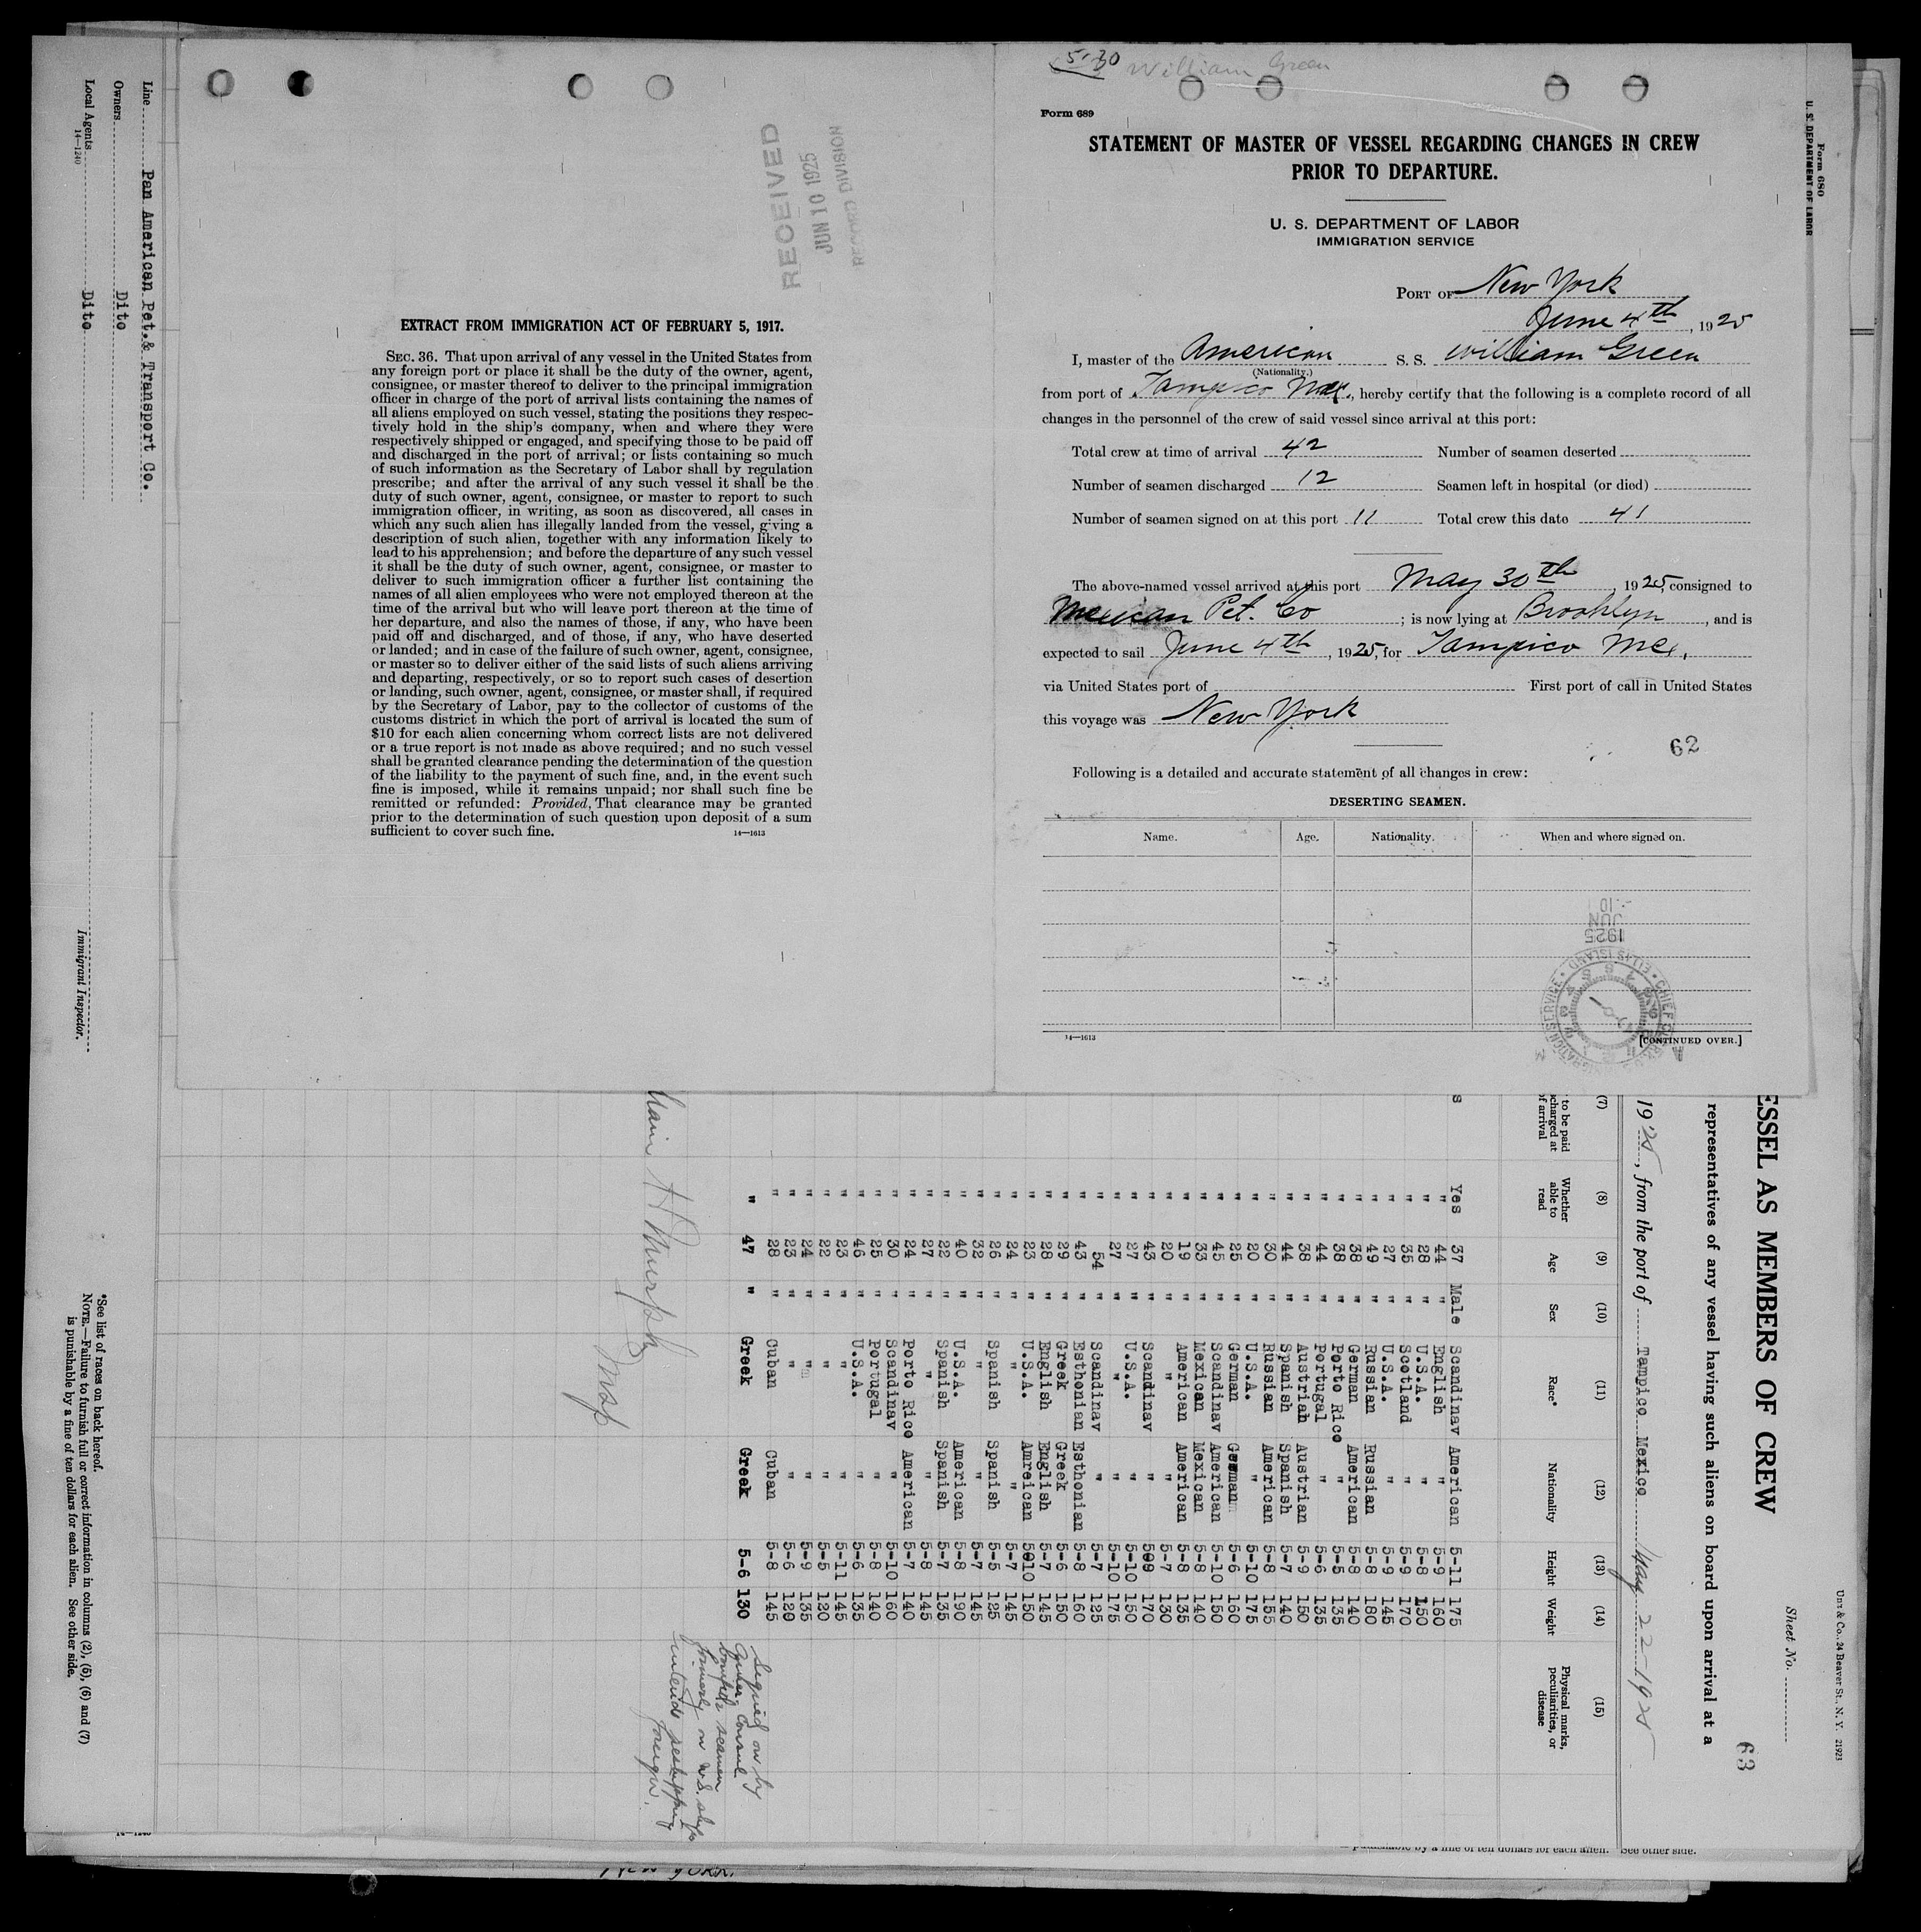 5-30 William Green
Form 689
STATEMENT OF MASTER OF VESSEL REGARDING CHANGES IN CREW
PRIOR TO DEPARTURE.
U. S. DEPARTMENT OF LABOR
IMMIGRATION SERVICE
PORT OF New York
June 4th, 1925
I, master of the American S. S. William Green
(Nationality.)
from port of Tampico Mex., hereby certify that the following is a complete record of all
changes in the personnel of the crew of said vessel since arrival at this port:
Total crew at time of arrival 42 Number of seamen deserted
Number of seamen discharged 12 Seamen left in hospital (or died)
Number of seamen signed on at this port 11 Total crew this date 41
The above-named vessel arrived at this port May 30th, 1925, consigned to
Mexican Pet. Co; is now lying at Brooklyn, and is
expected to sail June 4th, 1925, for Tampico Mex.
via United States port of First port of call in United States
this voyage was New York
62
Following is a detailed and accurate statement of all changes in crew:
DESERTING SEAMEN.
Name. Age. Nationality. When and where signed on.
14—1613
[CONTINUED OVER.]
1925
JUN
10
RECEIVED
JUN 10 1925
RECORD DIVISION
EXTRACT FROM IMMIGRATION ACT OF FEBRUARY 5, 1917.
SEC. 36. That upon arrival of any vessel in the United States from
any foreign port or place it shall be the duty of the owner, agent,
consignee, or master thereof to deliver to the principal immigration
officer in charge of the port of arrival lists containing the names of
all aliens employed on such vessel, stating the positions they respec-
tively hold in the ship's company, when and where they were
respectively shipped or engaged, and specifying those to be paid off
and discharged in the port of arrival; or lists containing so much
of such information as the Secretary of Labor shall by regulation
prescribe; and after the arrival of any such vessel it shall be the
duty of such owner, agent, consignee, or master to report to such
immigration officer, in writing, as soon as discovered, all cases in
which any such alien has illegally landed from the vessel, giving a
description of such alien, together with any information likely to
lead to his apprehension; and before the departure of any such vessel
it shall be the duty of such owner, agent, consignee, or master to
deliver to such immigration officer a further list containing the
names of all alien employees who were not employed thereon at the
time of the arrival but who will leave port thereon at the time of
her departure, and also the names of those, if any, who have been
paid off and discharged, and of those, if any, who have deserted
or landed; and in case of the failure of such owner, agent, consignee,
or master so to deliver either of the said lists of such aliens arriving
and departing, respectively, or so to report such cases of desertion
or landing, such owner, agent, consignee, or master shall, if required
by the Secretary of Labor, pay to the collector of customs of the
customs district in which the port of arrival is located the sum of
$10 for each alien concerning whom correct lists are not delivered
or a true report is not made as above required; and no such vessel
shall be granted clearance pending the determination of the question
of the liability to the payment of such fine, and, in the event such
fine is imposed, while it remains unpaid; nor shall such fine be
remitted or refunded: Provided, That clearance may be granted
prior to the determination of such question upon deposit of a sum
sufficient to cover such fine.
14—1613
Form 680
U. S. DEPARTMENT OF LABOR
21923
Sheet No.
63
ESSEL AS MEMBERS OF CREW
representatives of any vessel having such aliens on board upon arrival at a
1925, from the port of Tampico Mexico May 22-1925
(7) (8) (9) (10) (11) (12) (13) (14) (15)
to be paid
charged at
of arrival
Whether able to read
Age
Sex
Race*
Nationality
Height
Weight
Physical marks, peculiarities, or disease
Yes 37 Male Scandinav American 5-11 175
" 44 " English " 5-9 160
" 28 " U.S.A. " 5-8 150
" 35 " Scotland " 5-9 170
" 27 " U.S.A. " 5-9 145
" 49 " Russian Russian 5-8 180
" 38 " German American 5-8 140
" 38 " Porto Rico " 5-5 135
" 44 " Portugal " 5-6 135
" 38 " Austriah Austrian 5-9 150
" 44 " Spanish Spanish 5-7 140
" 30 " Russian American 5-8 155
" 20 " U.S.A. " 5-10 175
" 25 " German German 5-6 160
" 45 " Scandinav American 5-10 150
" 33 " Mexican Mexican 5-8 140
" 19 " American American 5-8 135
" 20 " " " 5-7 130
" 43 " Scandinav " 509 170
" 27 " U.S.A. " 5-10 150
" 27 " " " 5-10 175
" 54 " Scandinav " 5-7 125
" 43 " Esthonian Esthonian 5-8 160
" 29 " Greek Greek 5-6 150
" 28 " English English 5-7 145
" 23 " U.S.A. Amreican 5010 150
" 24 " " " 5-7 145
" 26 " Spanish Spanish 5-5 125
" 32 " " " 5-7 145
" 40 " U.S.A. American 5-8 190
" 22 " Spanish Spanish 5-7 135
" 27 " " " 5-8 145
" 24 " Porto Rico American 5-7 140
" 30 " Scandinav " 5-10 160
" 25 " Portugal " 5-8 140
" 46 " U.S.A. " 5-6 135
" 23 " " " 5-11 145
" 22 " " " 5-5 120
" 24 " " " 5-9 135
" 23 " " " 5-6 120
" 28 " Cuban Cuban 5-8 145
" 47 " Greek Greek 5-6 130
Signed on by
Amer. Consul
seamen
formerly on U.S. ships
intends reshipping
foreign.
H Murphy
Insp
Line Pan American Pet.& Transport Co.
Owners Dito
Local Agents Dito
14—1240
Immigrant Inspector.
*See list of races on back hereof.
NOTE.—Failure to furnish full or correct information in columns (2), (5), (6) and (7)
is punishable by a fine of ten dollars for each alien. See other side.
See other side.
New York.